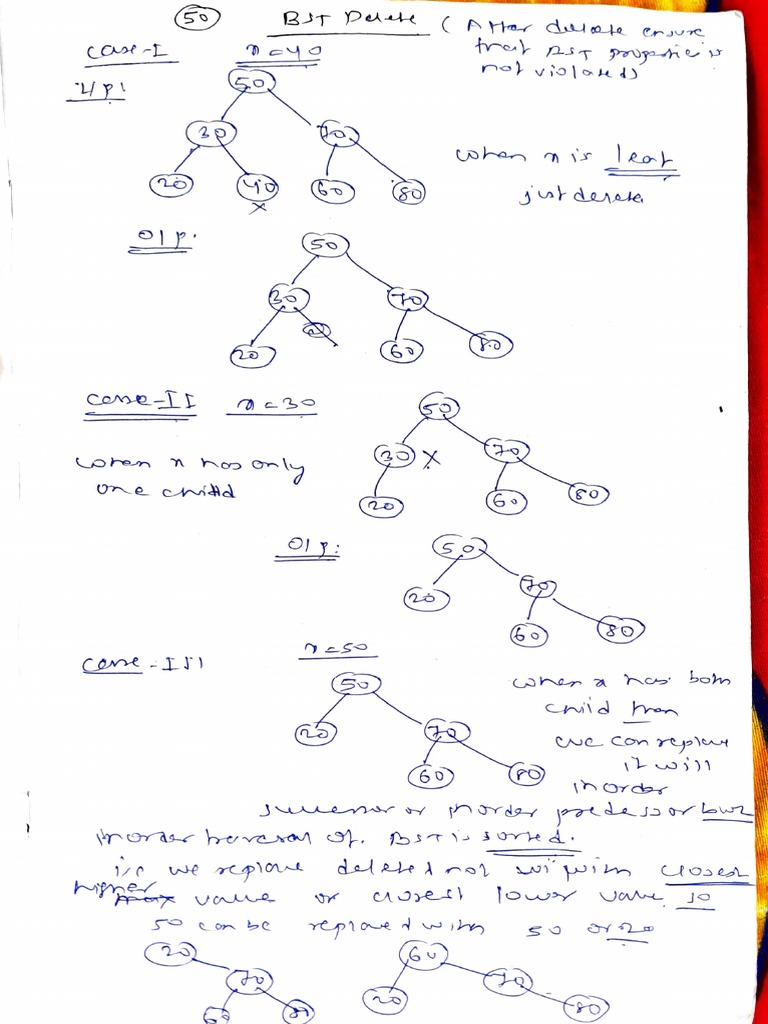 50 BST Delete (After delete ensure
that BST propertie is
not violates)
Case-I x=40
I/p:
50
30 70
20 40 60 80
x
when x is leaf
just delete
O/p.
50
30 70
20 60 80
Case-II x=30
50
30 x 70
20 60 80
when x has only
one child
O/p:
50
20 70
60 80
Case-III x=50
50
20 70
60 80
when x has both
child then
we can replace
it will
inorder
successor or inorder predessor
inorder traversal of. BST is sorted.
i/e we replace deleted not with closest
higher value or closest lower value. so
50 can be replaced with 50 or 20
20 60
70 20 70
60 80 80